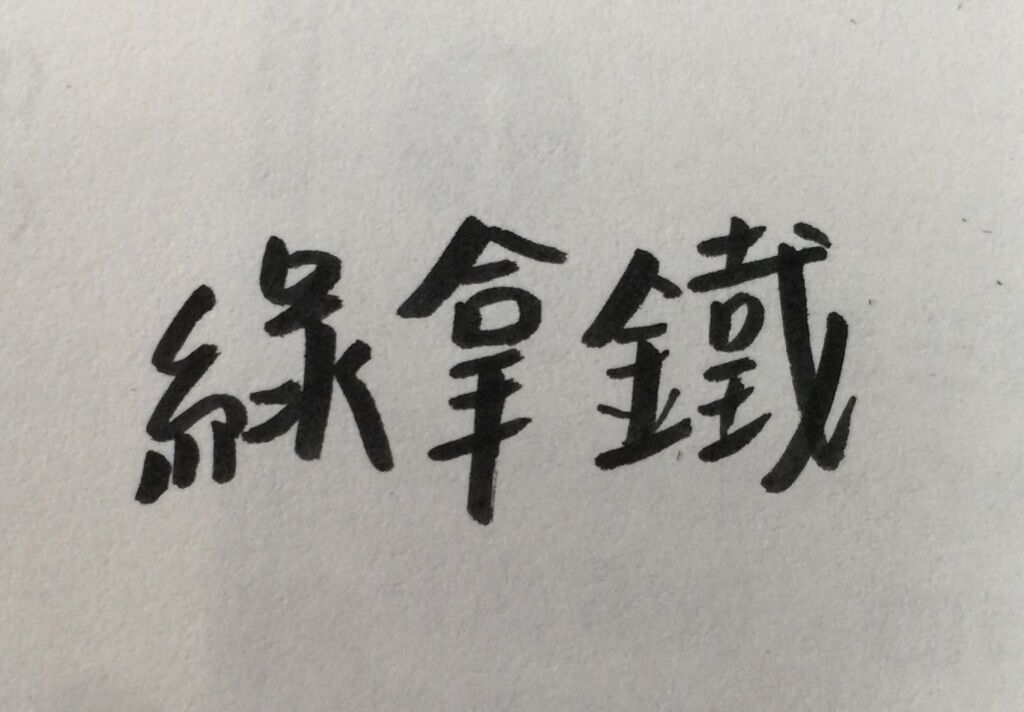 綠拿鐵